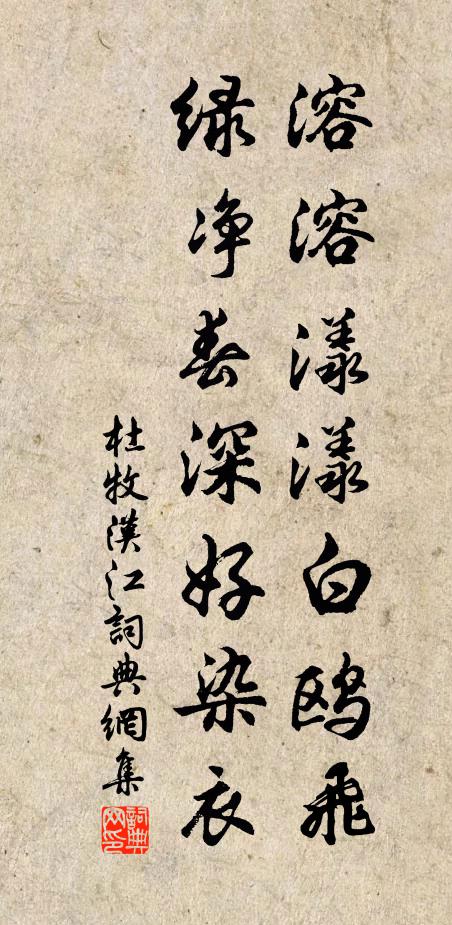 溶溶漾漾白鸥飛
緑净春深好染衣
杜牧漢江詞典網集
詞典网印